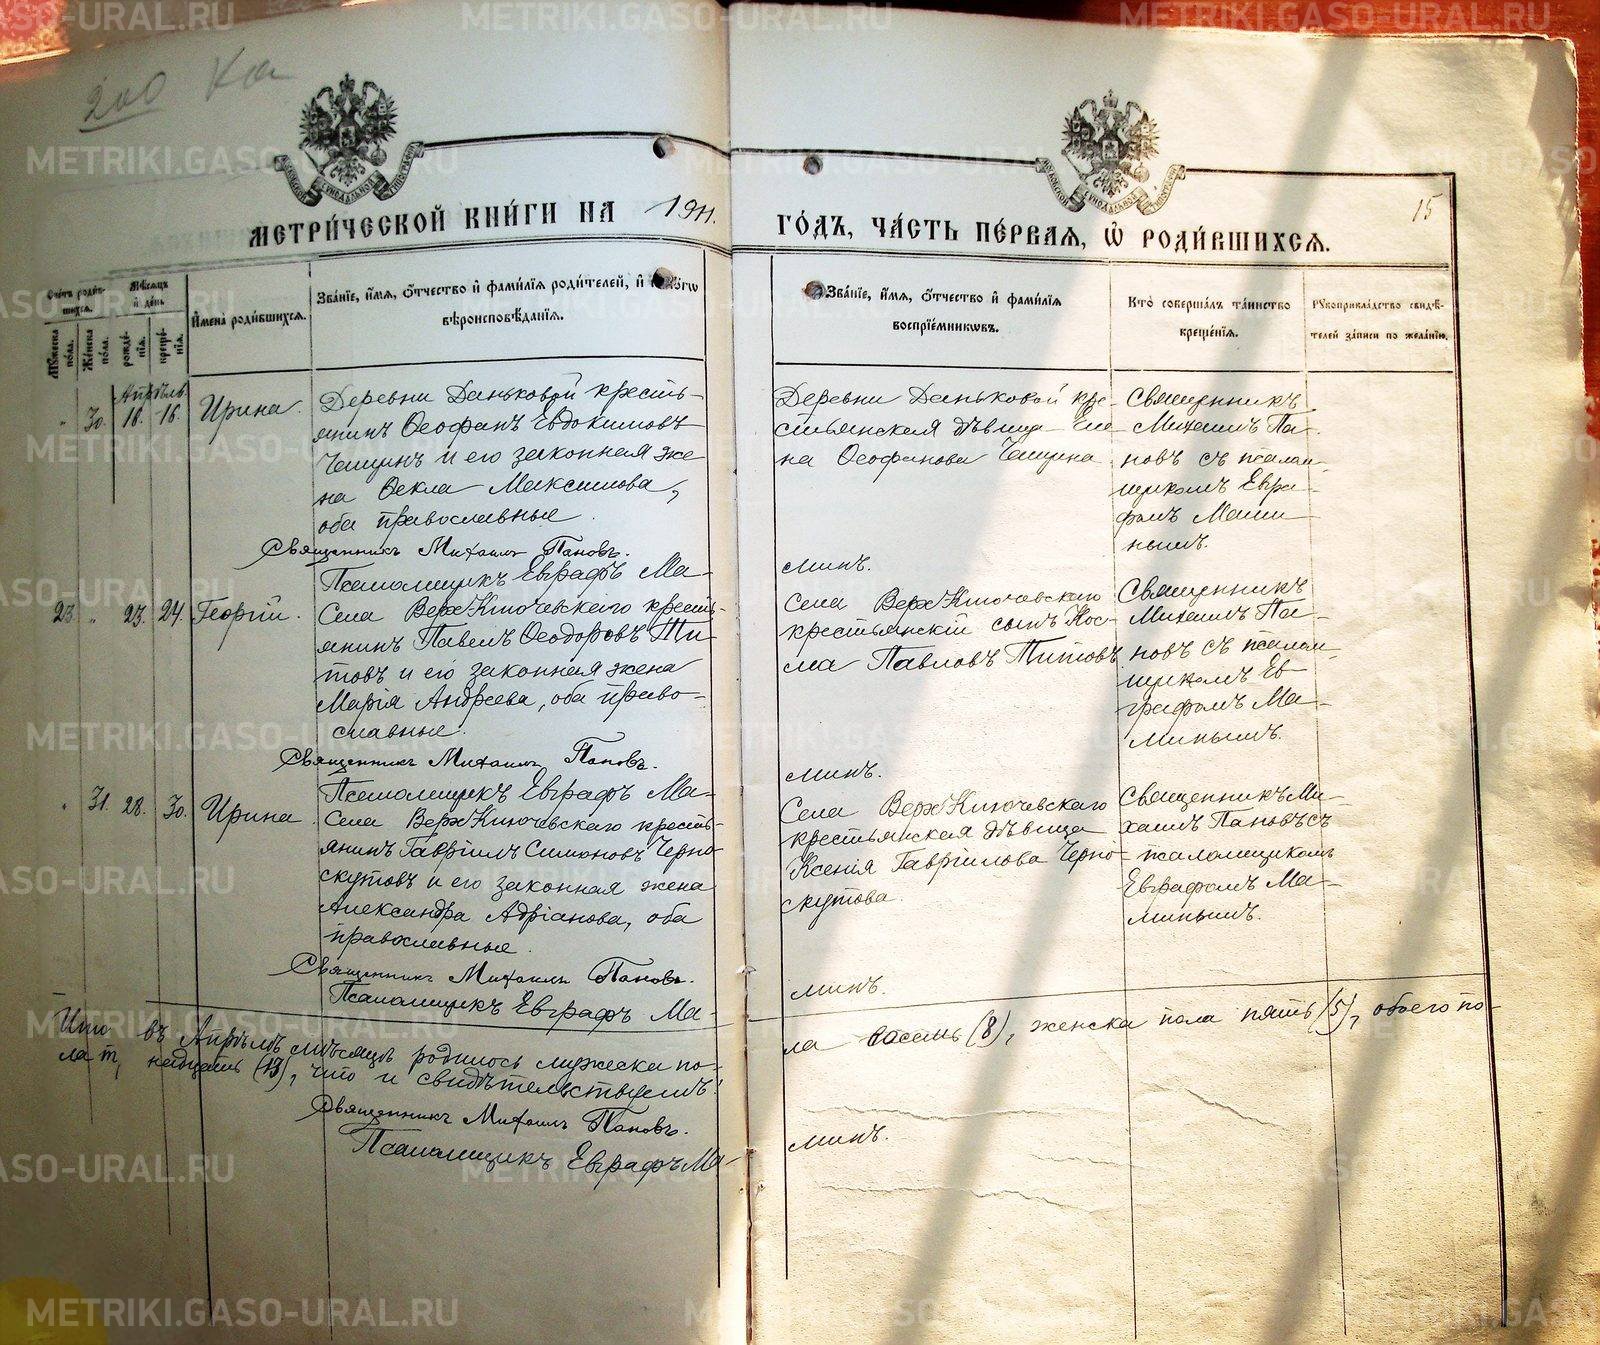 200
МЕТРИ́ЧЕСКОЙ КНИ́ГИ НА 1911.
ГО́ДЪ, ЧА́СТЬ ПЕ́РВАЯ, Ѡ҆ РОДИ́ВШИХСѦ.
15
Сче́тъ роди́в-
шихсѧ.
Мꙋ́жеска по́ла.
Же́нска по́ла.
Мѣ́сѧцъ и҆ де́нь
рожде́-нїѧ.
креще́-нїѧ.
И҆мена роди́вшихсѧ.
Зва́нїе, и҆́мѧ, ѻ҆́тчество и҆ фами́лїѧ роди́телей, и҆
вѣроисповѣ́данїѧ.
Зва́нїе, и҆́мѧ, ѻ҆́тчество и҆ фами́лїѧ
воспрїе́мникѡвъ.
Кто̀ соверша́лъ та́инство
креще́нїѧ.
Рꙋкоприкла́дство свидѣ́-
телей за́писи по жела́нїю.
Апрѣль
30. 16. 16. Ирина.
Деревни Даньковой кресть-
янинъ Ѳеофанъ Евдокимовъ
Чащинъ и его законная же
на Ѳекла Максимова,
оба православные.
Священникъ Михаилъ Пановъ.
Псаломщикъ Евграфъ Ма-
Деревни Даньковой кре-
стьянская дѣвица Еле
на Ѳеофанова Чащина
минъ.
Священникъ
Михаилъ Па-
новъ съ псалом-
щикомъ Евгра-
фомъ Мами-
нымъ.
23. " 23. 24. Георгій.
Села ВерхКлючевскаго кресть-
янинъ Павелъ Ѳеодоровъ Ти-
товъ и его законная жена
Марія Андреева, оба право-
славные.
Священникъ Михаилъ Пановъ.
Псаломщикъ Евграфъ Ма-
Села ВерхКлючевскаго
крестьянскій сынъ Кос-
ма Павловъ Титовъ.
минъ.
Священникъ
Михаилъ Па-
новъ съ псалом-
щикомъ Ев-
графомъ Ма-
минымъ.
" 31. 28. 30. Ирина.
Села ВерхКлючевскаго кресть-
янинъ Гавріилъ Симоновъ Черно-
скутовъ и его законная жена
Александра Адріанова, оба
православные.
Священникъ Михаилъ Пановъ.
Псаломщикъ Евграфъ Ма-
Села ВерхКлючевскаго
крестьянская дѣвица
Ксенія Гавріилова Черно-
скутова.
минъ.
Священникъ Ми-
хаилъ Пановъ съ
псаломщикомъ
Евграфомъ Ма-
минымъ.
Итого въ Апрѣлѣ мѣсяцѣ родилось мужеска по-
ла восемь (8), женска пола пять (5), обоего по-
ла три-
надцать (13), что и свидѣтельствуемъ:
Священникъ Михаилъ Пановъ.
Псаломщикъ Евграфъ Ма-
минъ.
METRIKI.GASO-URAL.RU